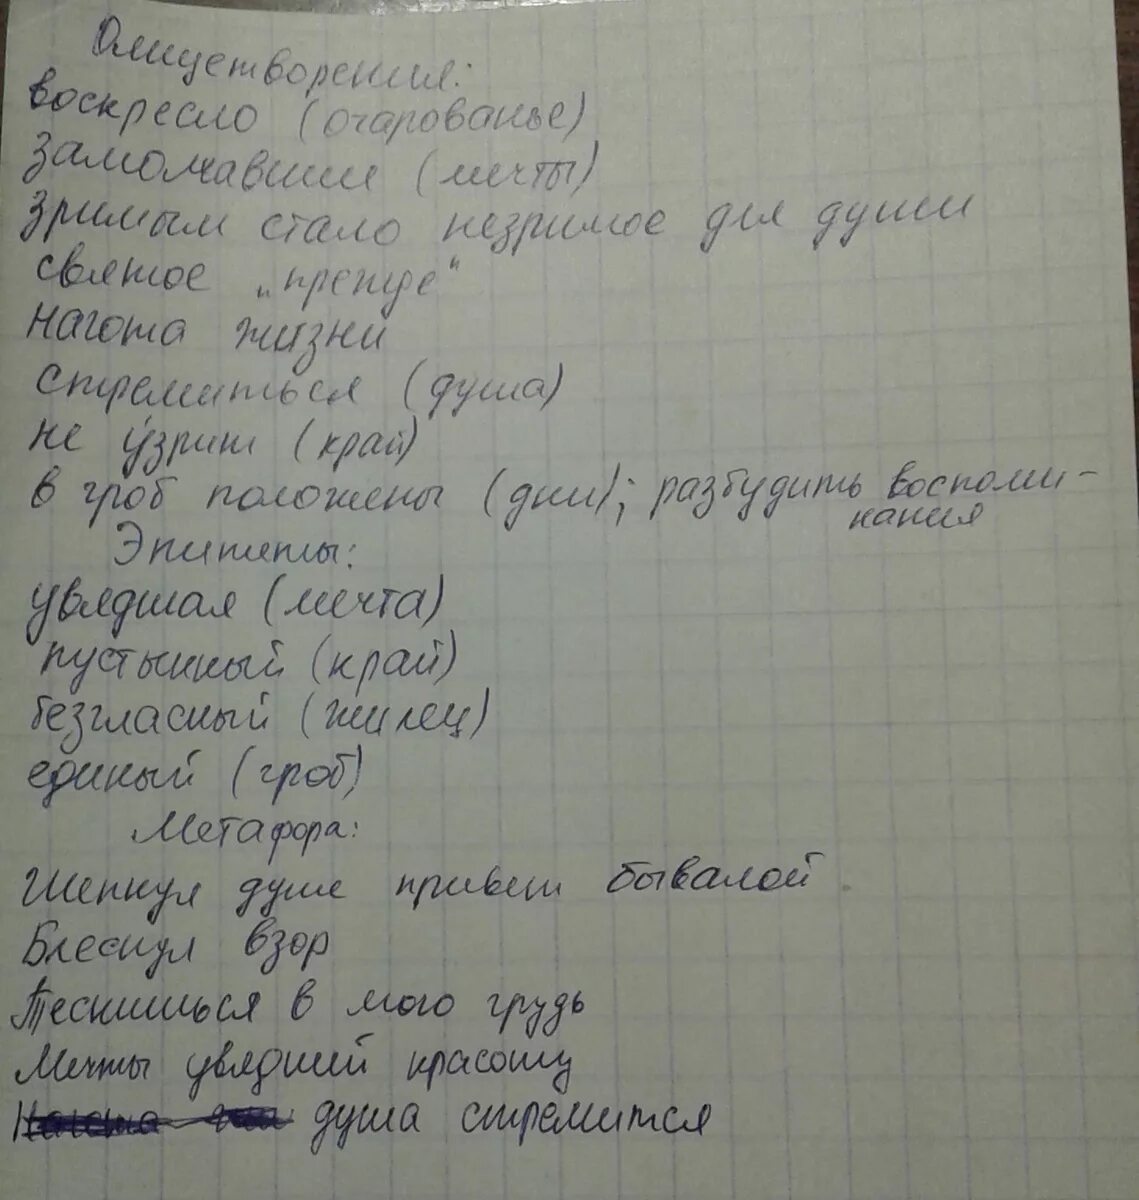 Олицетворения:
воскресло (очарованье)
замолчавшие (мечты)
зримым стало незримое для души
святое „прежде“
нагота жизни
стремиться (душа)
не узрит (край)
в гроб положены (дни); разбудить воспоми-
нания
Эпитеты:
увядшая (мечта)
пустынный (край)
безгласный (жилец)
единый (гроб)
Метафора:
Шепнул душе привет бывалой
Блеснул взор
Теснишься в мою грудь
Мечты увядшей красоту
душа стремится